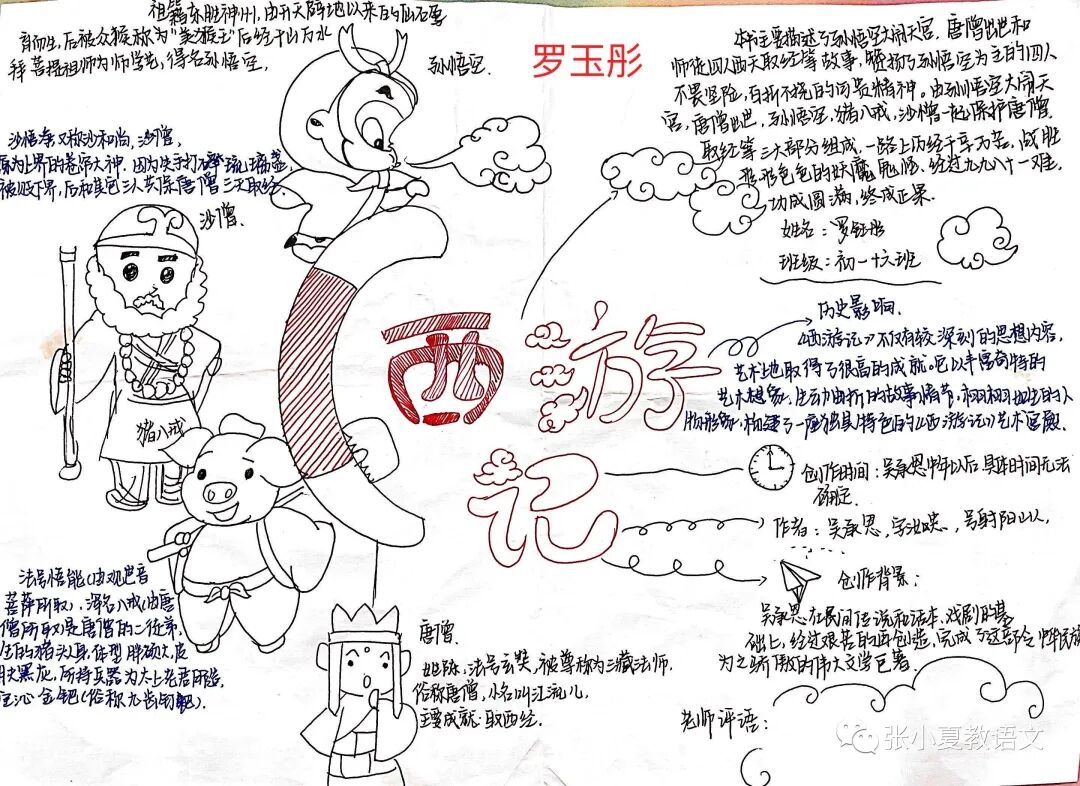 祖籍东胜神州,由开天辟地以来的仙石孕
育而生,后被众猴称为"美猴王"后经千山万水
拜菩提祖师为师学艺,得名孙悟空,
孙悟空.
罗玉彤
本书主要描述了孙悟空大闹天宫、唐僧出世和
师徒四人西天取经等故事,赞扬了孙悟空为主的四人
不畏艰险,百折不挠的可贵精神。由孙悟空大闹天
宫,唐僧出世,孙悟空,猪八戒,沙僧一起保护唐僧
取经等三大部分组成,一路上历经千辛万苦,战胜
形形色色的妖魔鬼怪、经过九九八十一难,
功成圆满,终成正果。
姓名:罗钰彤
班级:初一十六班
沙悟净又称沙和尚,沙僧,
原为上界的卷帘大神.因为失手打碎琉璃盏,
被贬下界,后和其它三人共保唐僧三天取经.
沙僧.
猪八戒
西游记
历史影响.
《西游记》不仅有较深刻的思想内容,
艺术地取得了很高的成就。它以丰富奇特的
艺术想象、生动曲折的故事情节,栩栩如生的人
物形象,构建了一座独具特色的《西游记》艺术宫殿
创作时间:吴承恩中年以后具体时间无法
确定.
作者:吴承恩,字汝忠,号射阳山人,
创作背景:
吴承恩在民间传说和话本、戏剧的基
础上,经过艰苦的再创造,完成了这部令中华民族
为之骄傲的伟大文学巨著.
老师评语:
法号悟能(由观世音
菩萨所取),浑名八戒(由唐
僧所取)是唐僧的二徒弟,
生的猪头人身体型肥硕大皮
肤黑龙,所持兵器为太上老君所造
金沁金钯(俗称九齿钉钯).
唐僧.
姓陈,法号玄奘,被尊称为三藏法师,
俗称唐僧,小名叫江流儿.
主要成就:取西经.
张小夏教语文